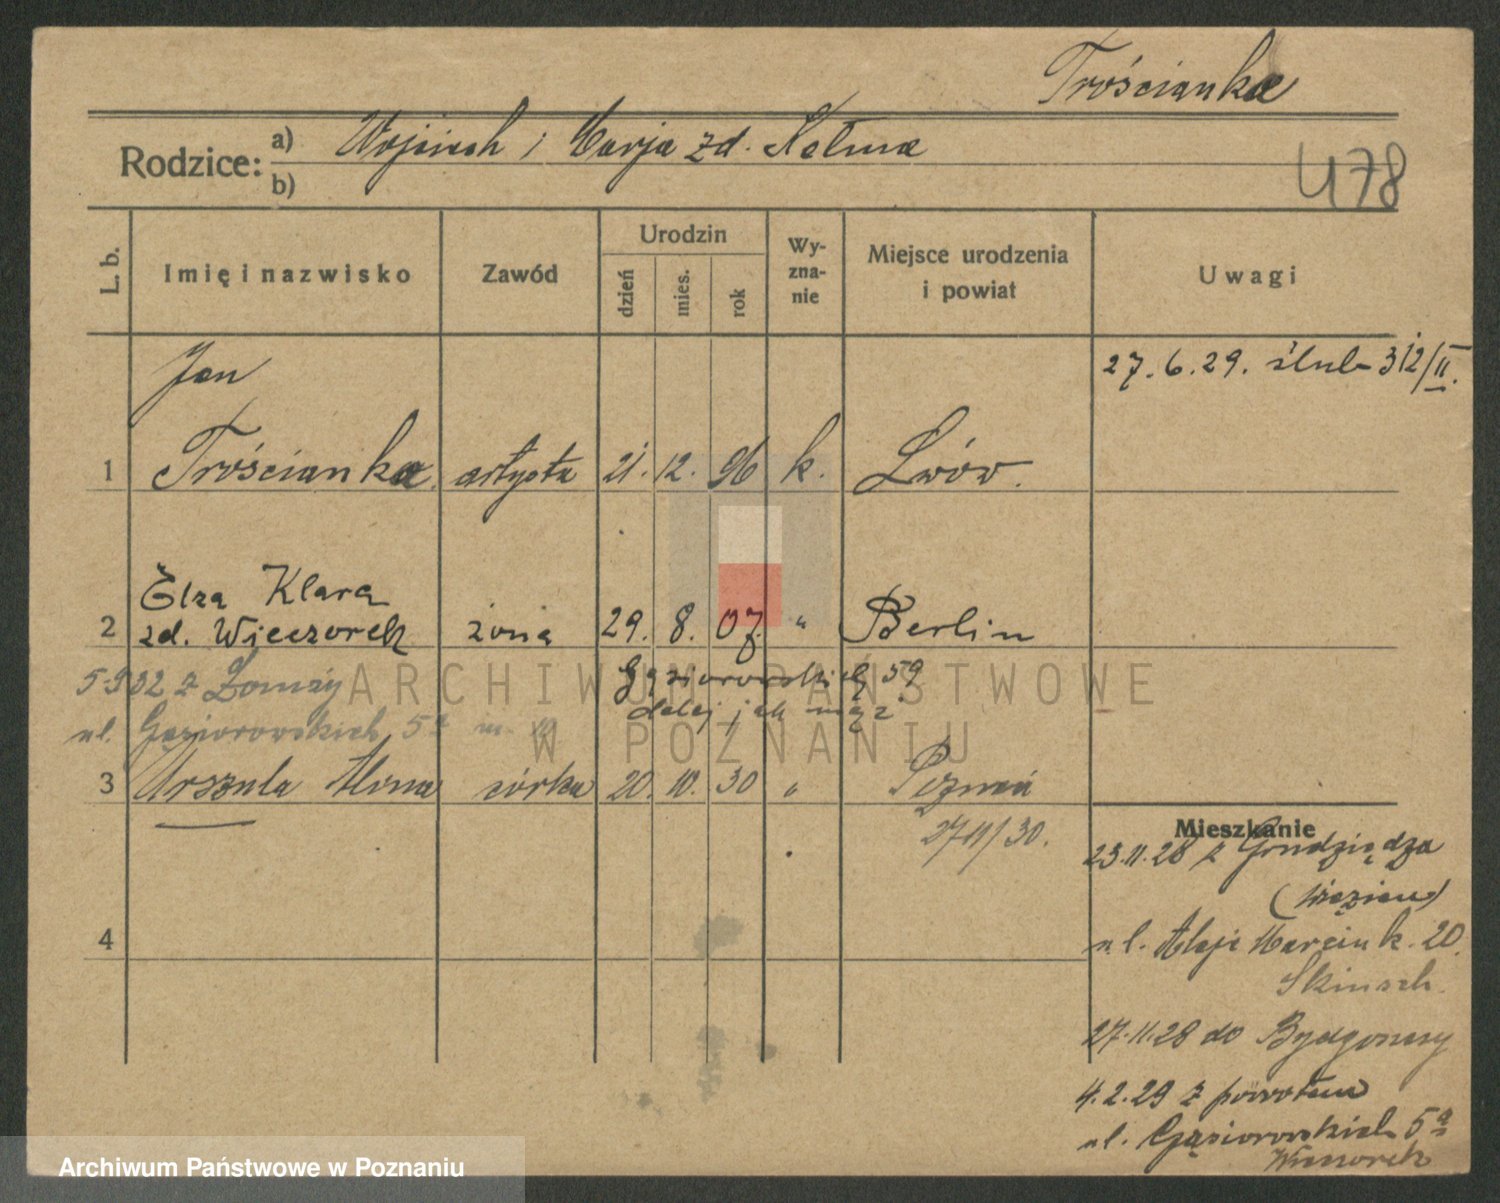 Trościanka
Rodzice: a) Wojciech i Marja zd. Kałma
b)
478
L. b.
Imię i nazwisko
Zawód
Urodzin
dzień
mies.
rok
Wy-
zna-
nie
Miejsce urodzenia
i powiat
Uwagi
27.6.29. ślub 312/II.
Jan
1 Trościanka artysta 21. 12. 96 k. Lwów.
Elza Klara
2 zd. Wieczorek żona 29. 8. 07. " Berlin
5.9.32 z Łomży
Gąsiorowskich 59
dalej jak mąż
ul. Gąsiorowskich 5a m. 10
3 Urszula córka 20. 10. 30 " Poznań
27/11/30.
4
Mieszkanie
23.11.28 z Grudziądza
(więzien)
ul. Aleje Marcink. 20.
27.11.28 do Bydgoszczy
4.2.29 z powrotem
ul. Gąsiorowskich 5a
Wieczorek
ARCHIWUM PAŃSTWOWE
W POZNANIU
Archiwum Państwowe w Poznaniu